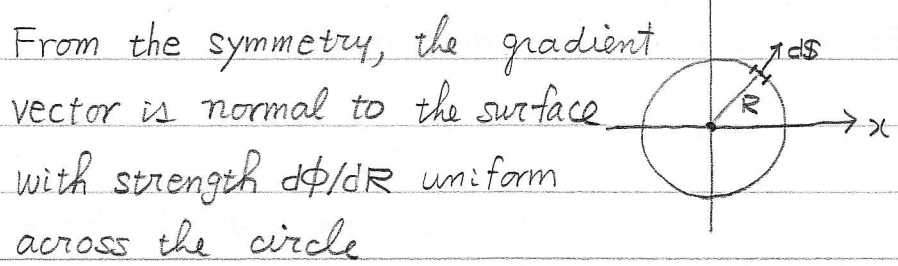 From the symmetry, the gradient
vector is normal to the surface
with strength dϕ/dR uniform
across the circle
d$
R
x